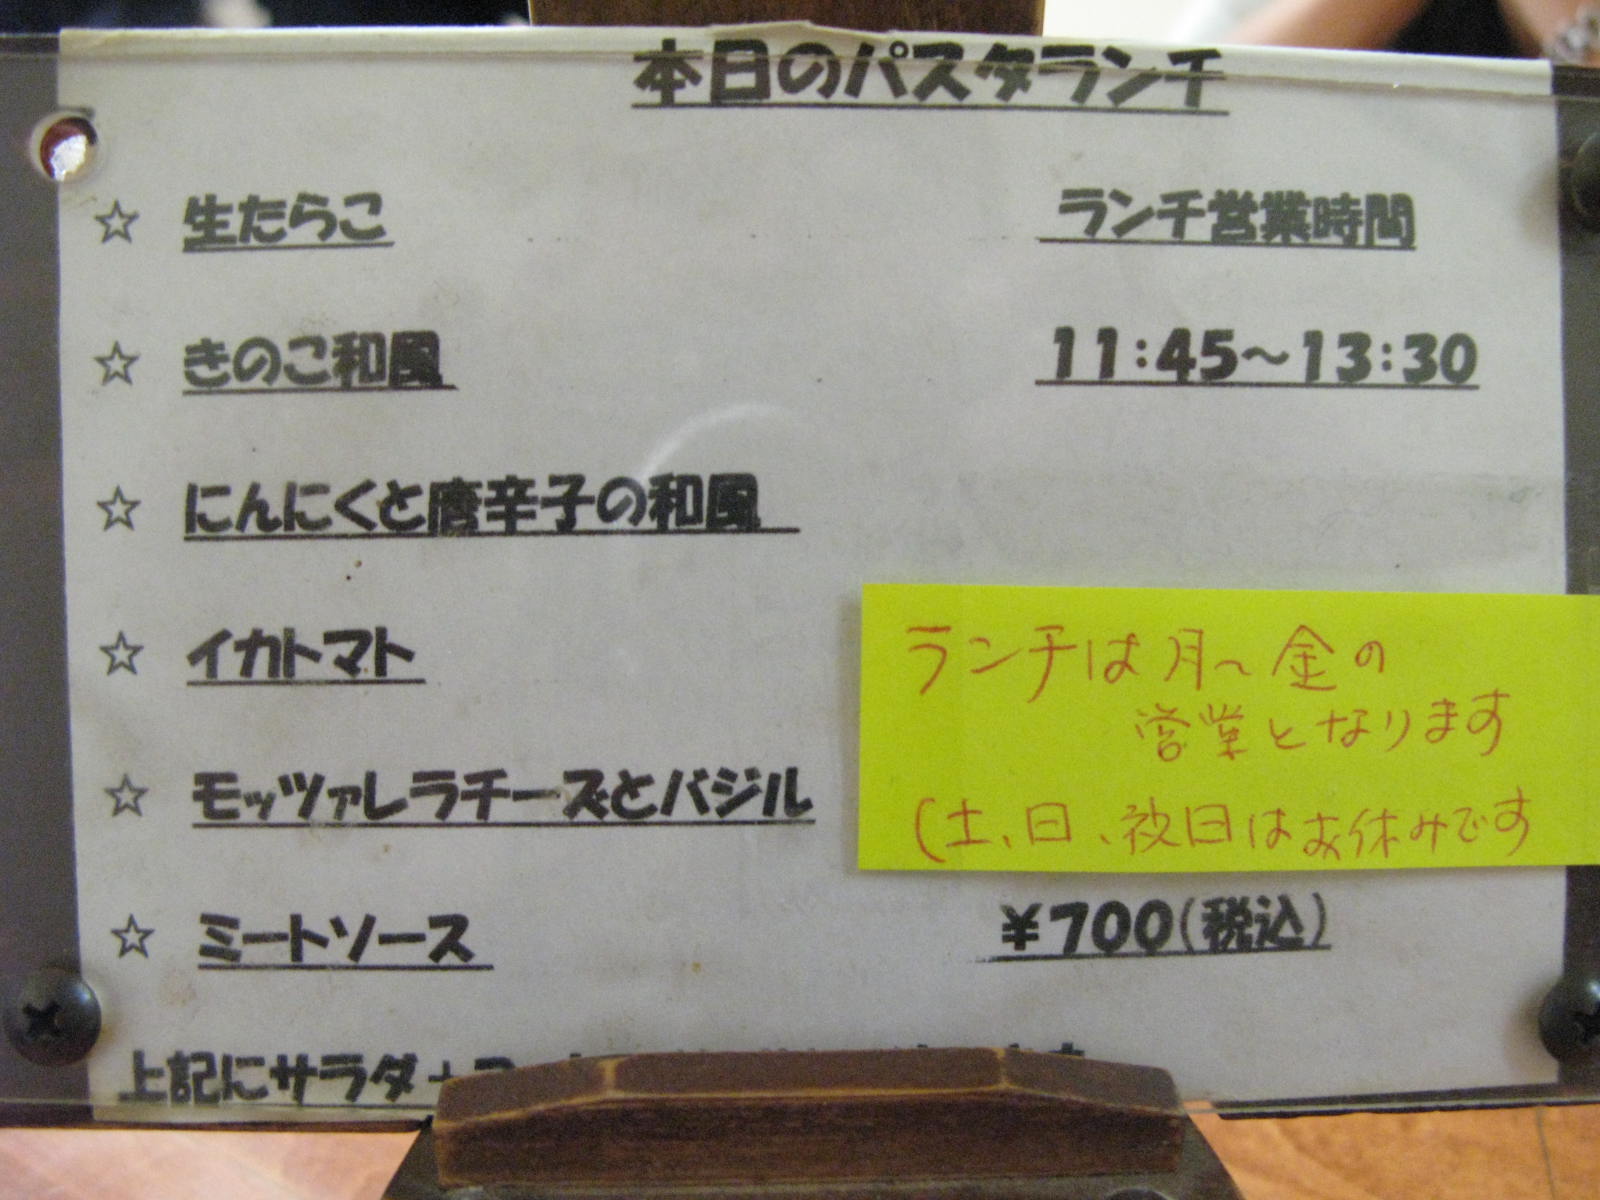 本日のパスタランチ
☆ 生たらこ
ランチ営業時間
☆ きのこ和風
11:45～13:30
☆ にんにくと唐辛子の和風
☆ イカトマト
ランチは月～金の
営業となります
(土、日、祝日はお休みです
☆ モッツァレラチーズとバジル
☆ ミートソース
¥700(税込)
上記にサラダ+